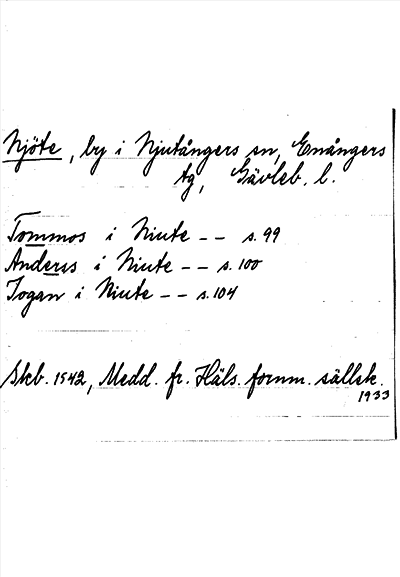 Njöte, by i Njutångers sn, Enångers
tg, Gävleb. l.
Tommos i Niute -- s. 99
Anderss i Niute -- s. 100
Jogan i Niute -- s. 104
Skb. 1542, Medd. fr. Häls. fornm. sällsk.
1933